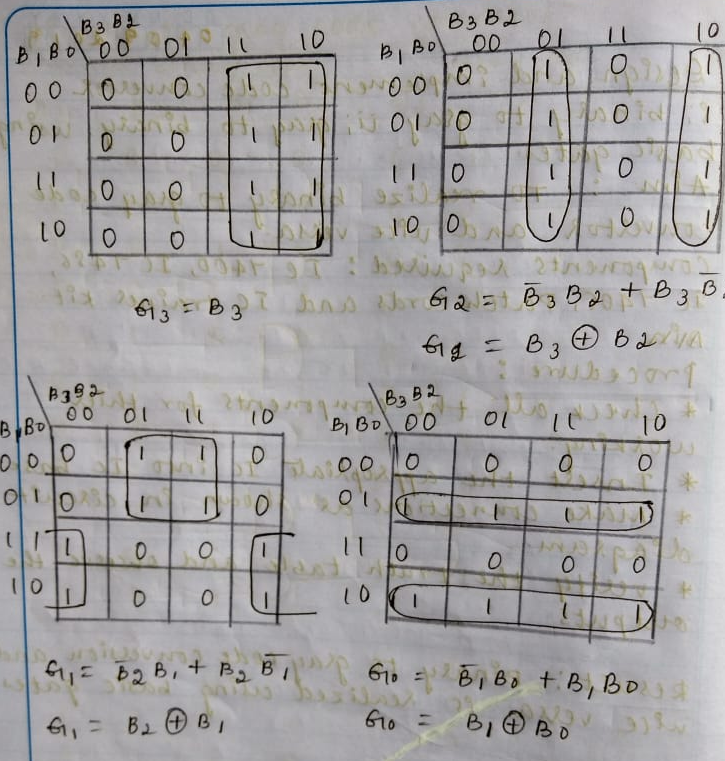 B3 B2
B1 B0 00 01 11 10
00 0 0 1 1
01 0 0 1 1
11 0 0 1 1
10 0 0 1 1
G3 = B3
B3 B2
B1 B0 00 01 11 10
00 0 1 0 1
01 0 1 0 1
11 0 1 0 1
10 0 1 0 1
G2 = B̅3 B2 + B3 B̅
G2 = B3 ⊕ B2
B3 B2
B1 B0 00 01 11 10
00 0 1 1 0
01 0 1 1 0
11 1 0 0 1
10 1 0 0 1
G1 = B̅2 B1 + B2 B̅1
G1 = B2 ⊕ B1
B3 B2
B1 B0 00 01 11 10
00 0 0 0 0
01 1 1 1 1
11 0 0 0 0
10 1 1 1 1
G0 = B̅1 B0 + B1 B0
G0 = B1 ⊕ B0